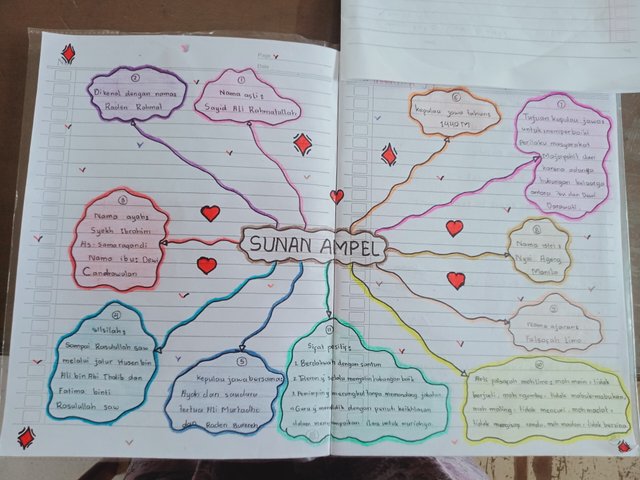 Page
Date
SUNAN AMPEL
1
Nama asli:
Sayid Ali Rahmatullah
2
Dikenal dengan nama:
Raden Rahmat
3
Nama ayah:
Syekh Ibrahim
As-samarqandi
Nama ibu: Dewi
Candrawulan
4
silsilah:
Sampai Rasulullah saw
melalui jalur Husen bin
Ali bin Abi Thalib dan
Fatima binti
Rasulullah saw
5
kepulau jawa bersama:
Ayah dan saudara
tertua Ali Murtadho
dan Raden Burereh
6
kepulau jawa tahun:
1440 M
7
Tujuan kepulau jawa:
untuk memperbaiki
Perilaku masyarakat
Majapahit dan
karena adanya
hubungan keluarga
antara ibu dan Dewi
Darawati
8
Nama istri:
Nyai Ageng
Manila
9
Nama ajaran:
Falsafah Lima
10
moh main: tidak
berjudi, moh ngombe: tidak mabuk-mabukan,
moh maling: tidak mencuri, moh madat:
tidak narkoba, moh madon: tidak berzina
11
Sifat positif:
1. Berdakwah dengan santun
selalu menjalin hubungan baik
3. Pemimpin yg merangkul tanpa memandang jabatan
4. Guru yg mendidik dengan penuh keikhlasan
dalam menyampaikan ilmu untuk muridnya